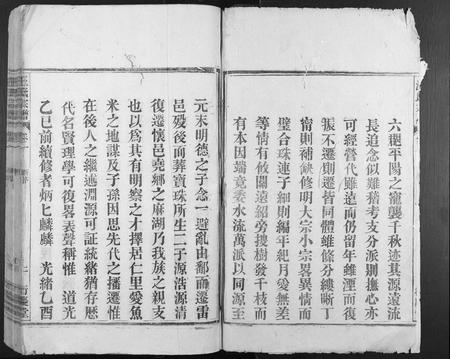 六龍平陽之寵襲千秋迹其源遠流
長追念似難稽考支分派則撫心亦
可經營代雖遠而仍留年雖湮而復
振不遷則遷皆同體維條分縷晰丁
甯則補缺修明大宗小宗畧異情而
璧合珠連子細則編年紀月爰無差
等情有攸關遠紹旁搜樹發千枝而
有本因端竟委水流萬派以同源至
元末明德之子念一避亂由鄱而遷雷
邑歿後而葬寶珠所生二子源浩源清
復遷懷邑堯鄉之麻湖乃我族之親支
也以爲其有明察之才擇居仁里愛魚
米之地謀及子孫因思先代之播遷惟
在後人之繼述淵源可証統緒猶存歷
代名賢理學可復畧表聲稱惟 道光
乙巳前續修者炳七麟麟 光緒乙酉